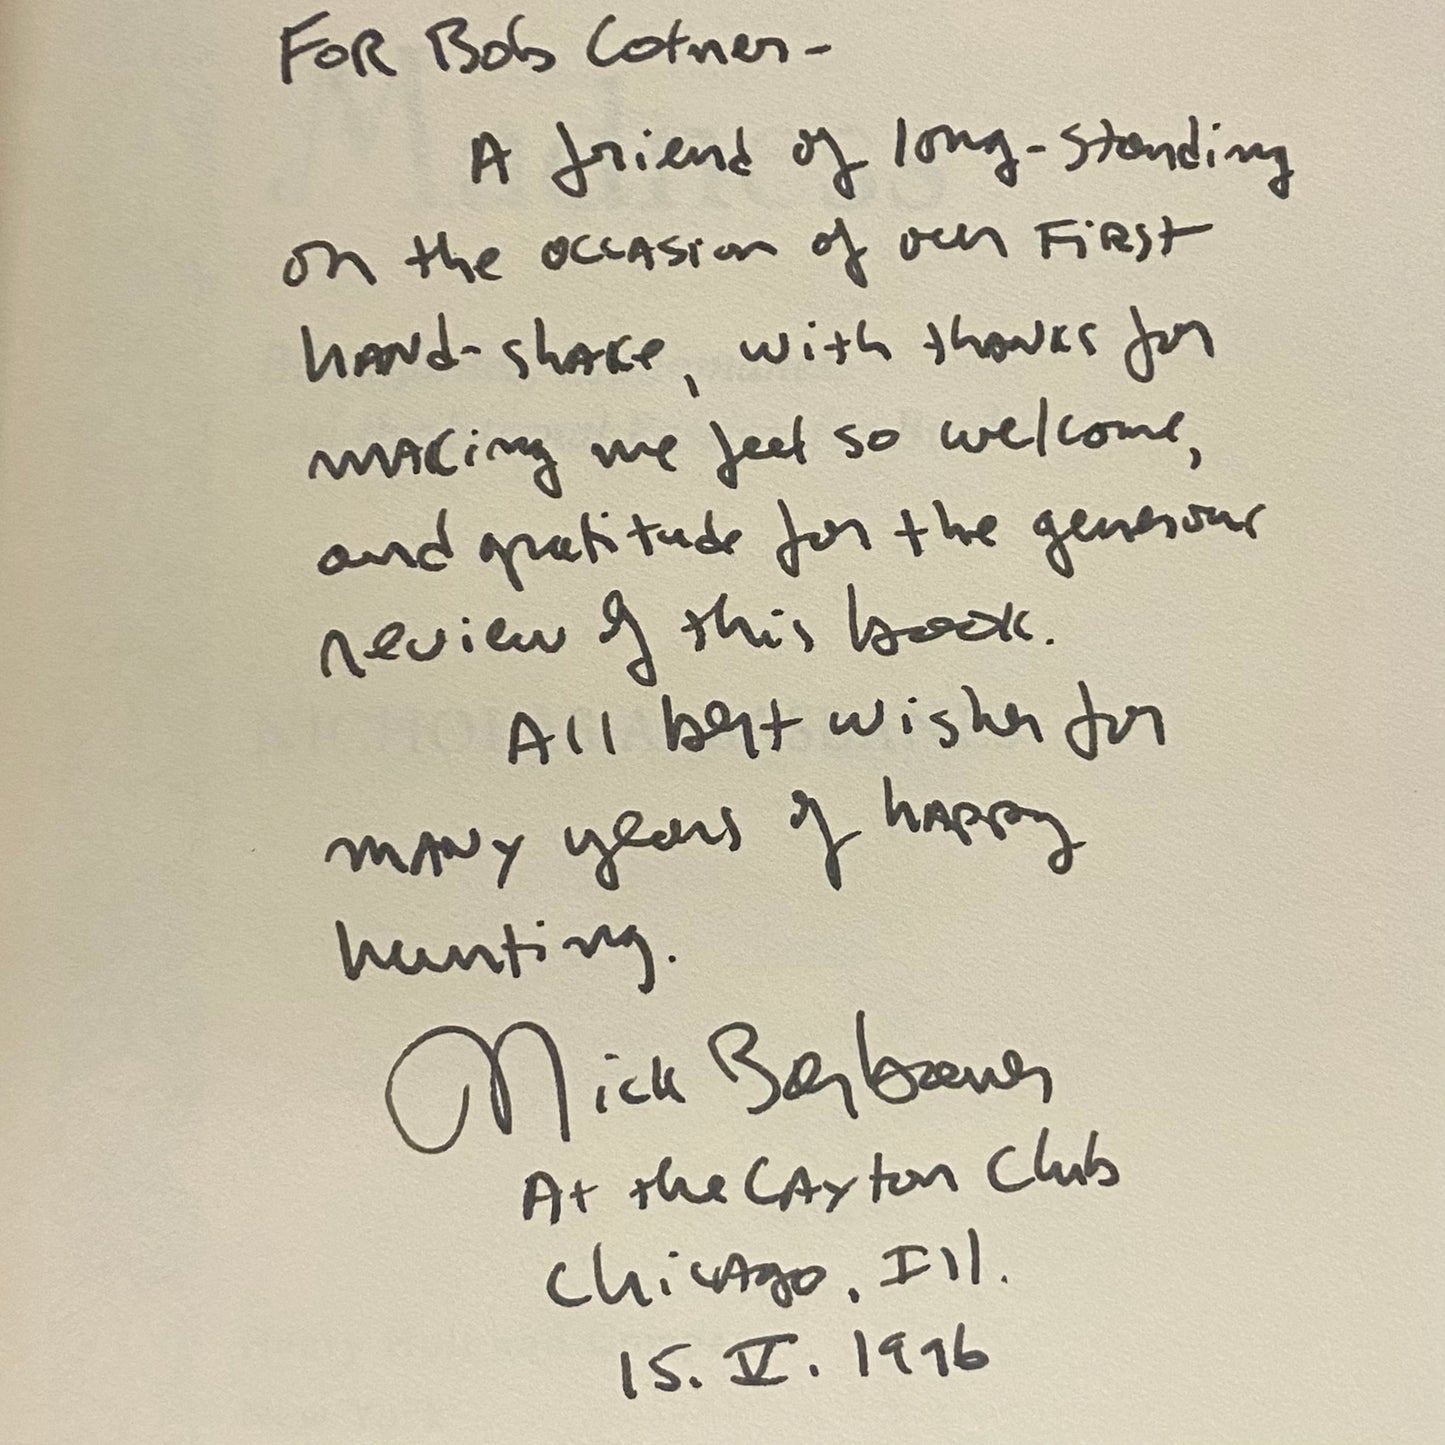 FOR Bob Cotner-
A friend of long-standing
on the occasion of our FiRST
hand-shake, with thanks for
making me feel so welcome,
and gratitude for the generous
review of this book.
All best wishes for
many years of happy
hunting.
Nick Basbanes
At the Caxton Club
Chicago, Ill.
15. V. 1996